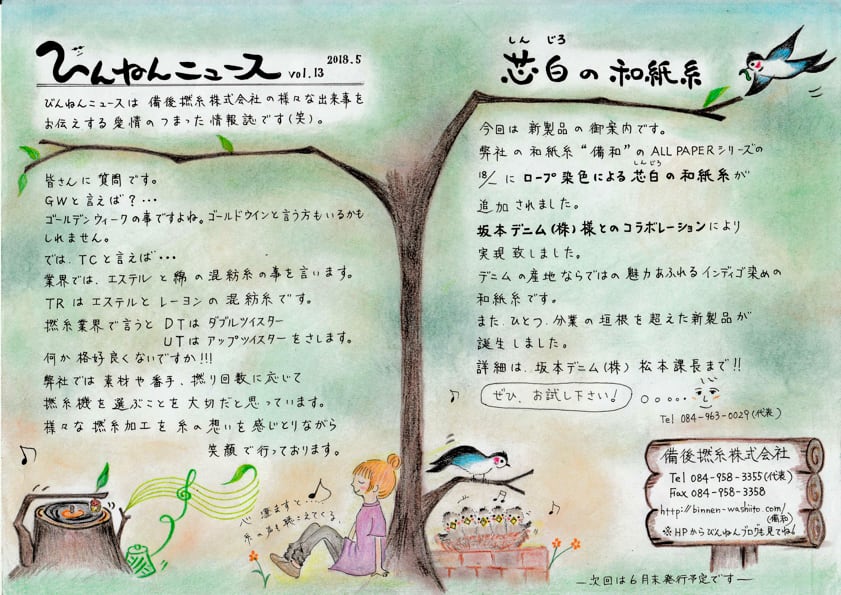 びんねんニュース vol.13 2018.5
びんねんニュースは 備後撚糸株式会社の様々な出来事を
お伝えする愛情のつまった情報誌です(笑)。
皆さんに質問です。
GWと言えば?・・・
ゴールデンウィークの事ですよね。ゴールドウインと言う方もいるかも
しれません。
では、TCと言えば・・・
業界では、エステルと綿の混紡糸の事を言います。
TRはエステルとレーヨンの混紡糸です。
撚糸業界で言うと DTは ダブルツイスター
UTは アップツイスターをさします。
何か格好良くないですか!!!
弊社では素材や番手、撚り回数に応じて
撚糸機を選ぶことを大切だと思っています。
様々な撚糸加工を糸の想いを感じとりながら
笑顔で行っております。
心 澄ますと・・・・
糸の声も聴こえてくる。
しん じろ
芯白の和紙糸
今回は新製品の御案内です。
弊社の和紙糸“備和”のALL PAPERシリーズの
しんじろ
18/ーにロープ染色による芯白の和紙糸が
追加されました。
坂本デニム(株)様とのコラボレーションにより
実現致しました。
デニムの産地ならではの魅力あふれるインディゴ染めの
和紙糸です。
また、ひとつ、分業の垣根を超えた新製品が
誕生しました。
詳細は、坂本デニム(株) 松本課長まで!!
ぜひ、お試し下さい!
Tel 084-963-0029(代表)
備後撚糸株式会社
Tel 084-958-3355(代表)
Fax 084-958-3358
http://binnen-washiito.com/
(備和)
※HPからびんねんブログも見てね!
―次回は6月末発行予定です―